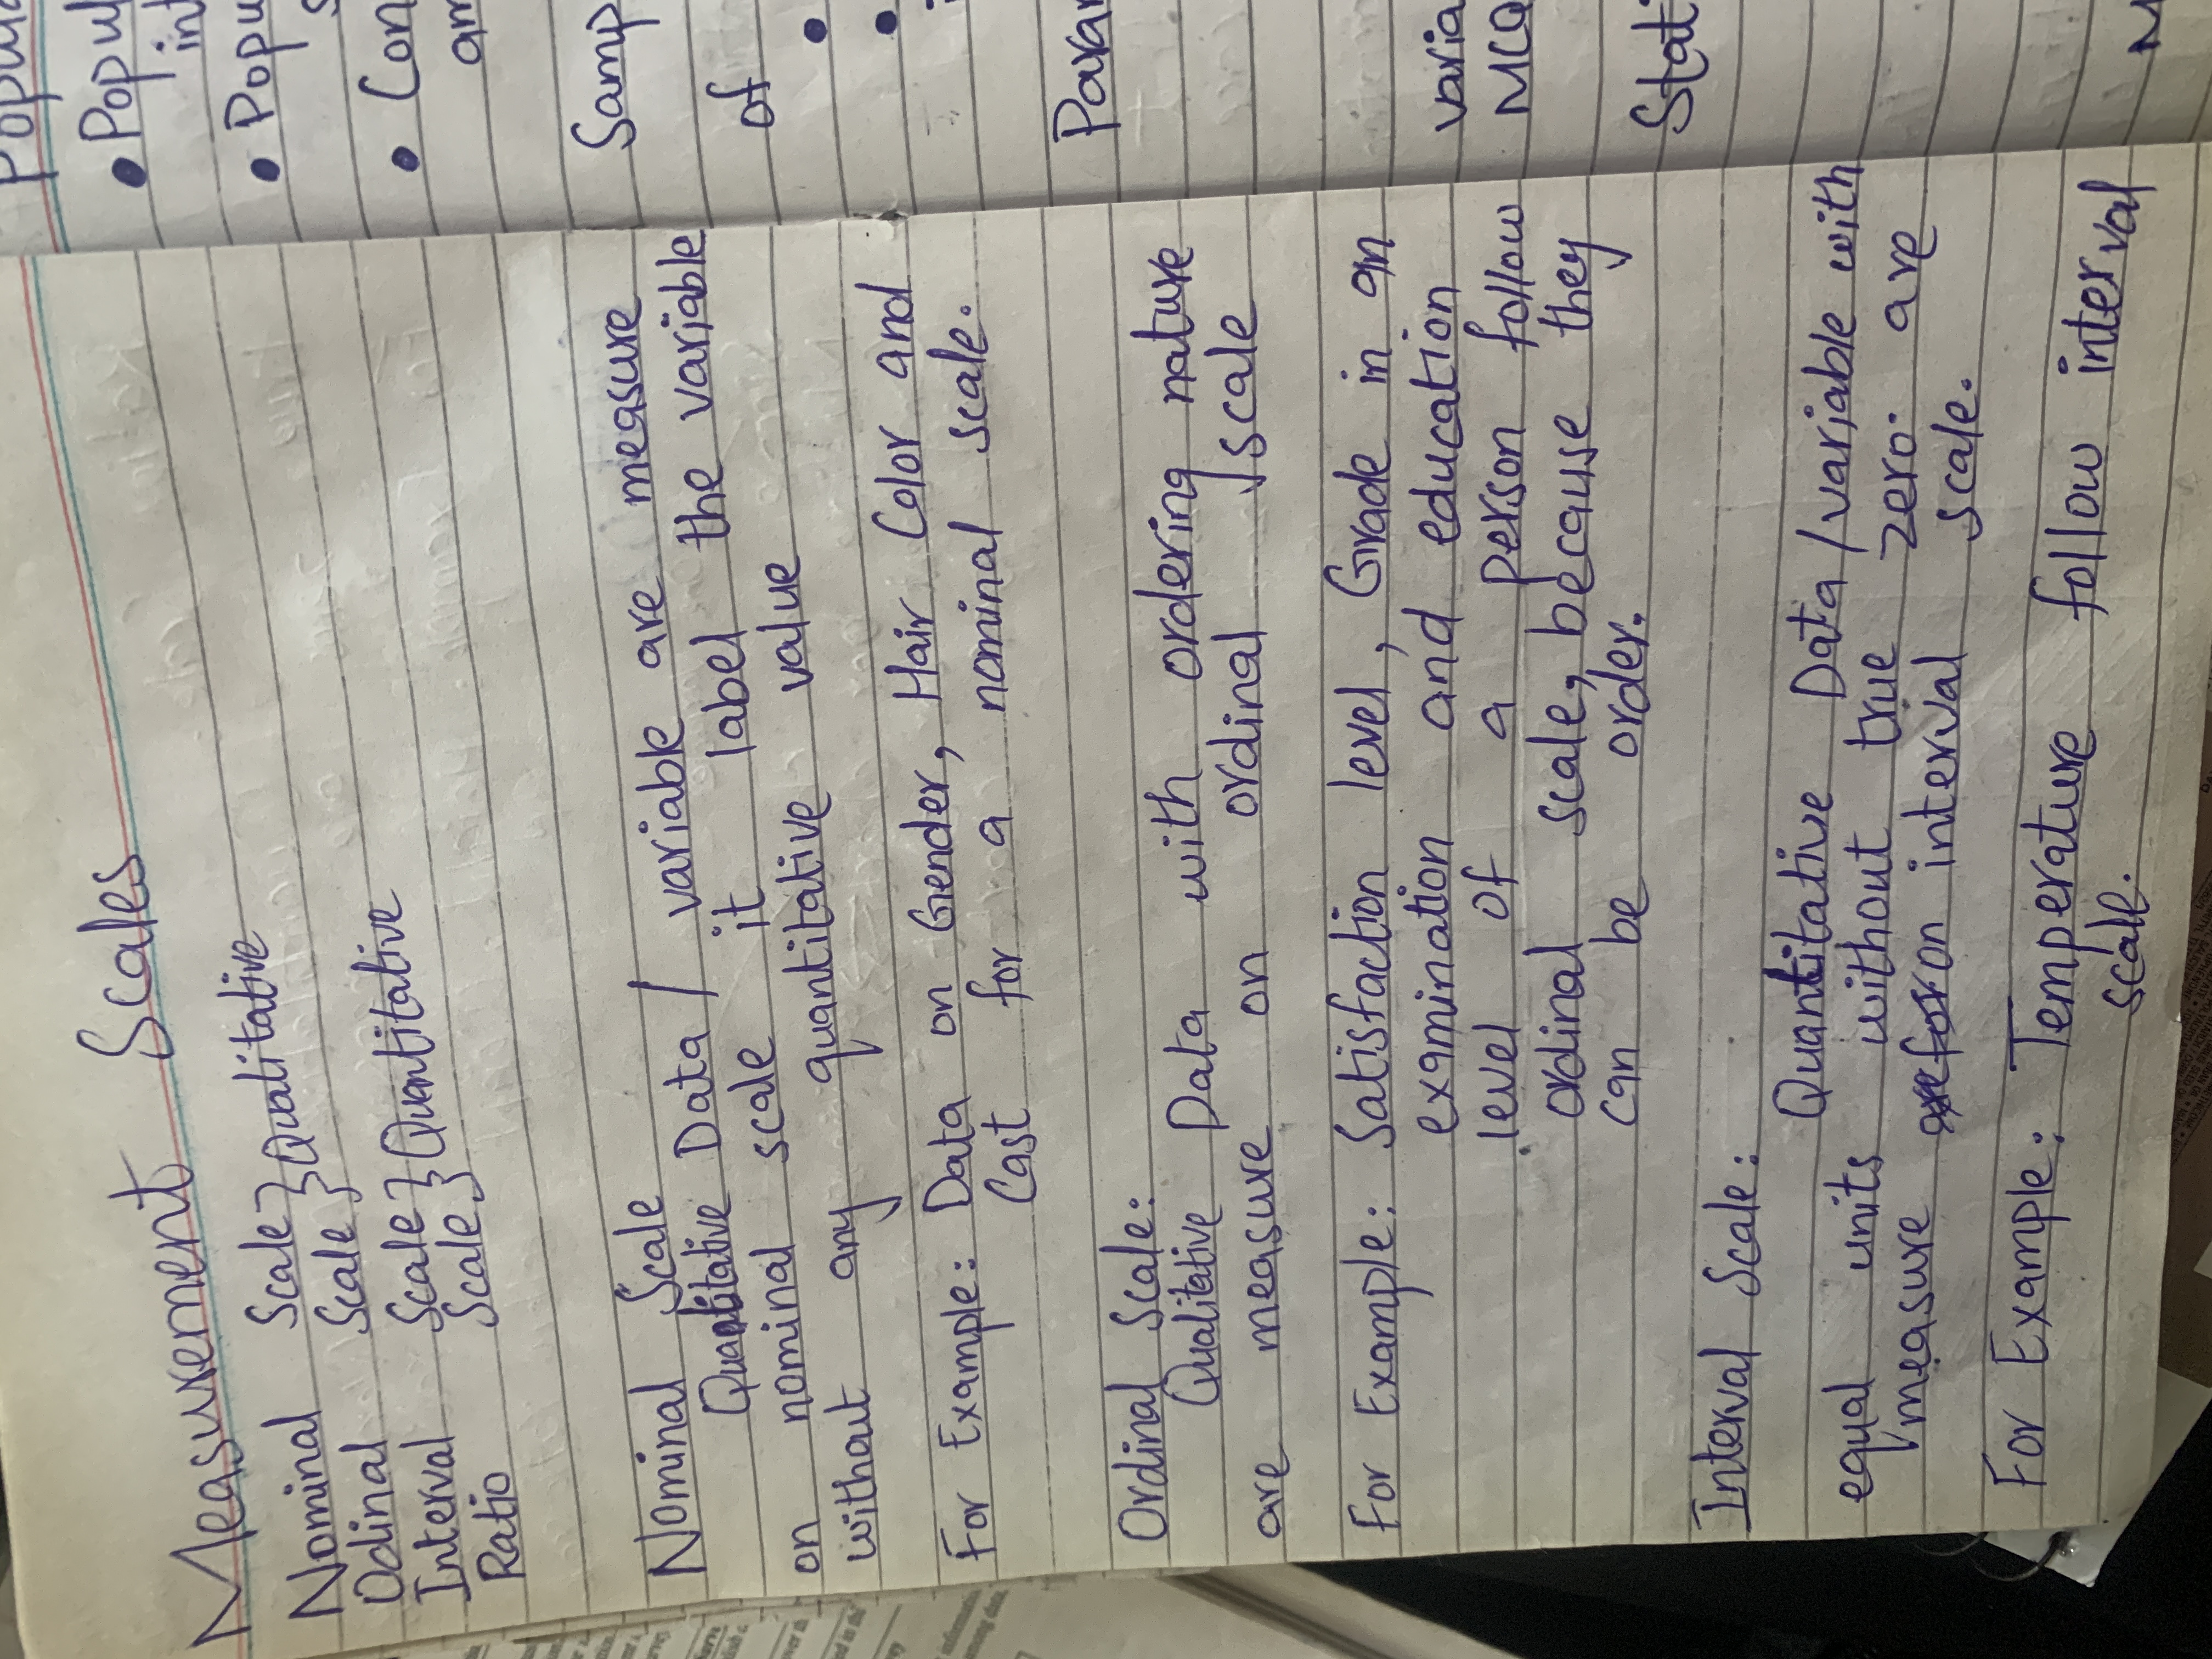 Measurement Scales
Nominal Scale } Qualitative
Odinal Scale
Interval Scale } Quantitative
Ratio Scale
Nominal Scale
Quantitative Data / variable are measure
on nominal scale it label the variable
without any quantitative value
For Example: Data on Gender, Hair Color and
Cast for a nominal scale.
Ordinal Scale:
Qualitative Data with ordering nature
are measure on ordinal scale
For Example: Satisfaction level, Grade in an
examination and education
level of a person follow
ordinal scale, because they
can be order.
Interval Scale:
Quantitative Data / variable with
equal units without true zero are
measure on interval scale.
For Example: Temperature follow interval
scale.
Popul
int
Popu
Con
am
Samp
of
Param
varia
MCQ
Stati